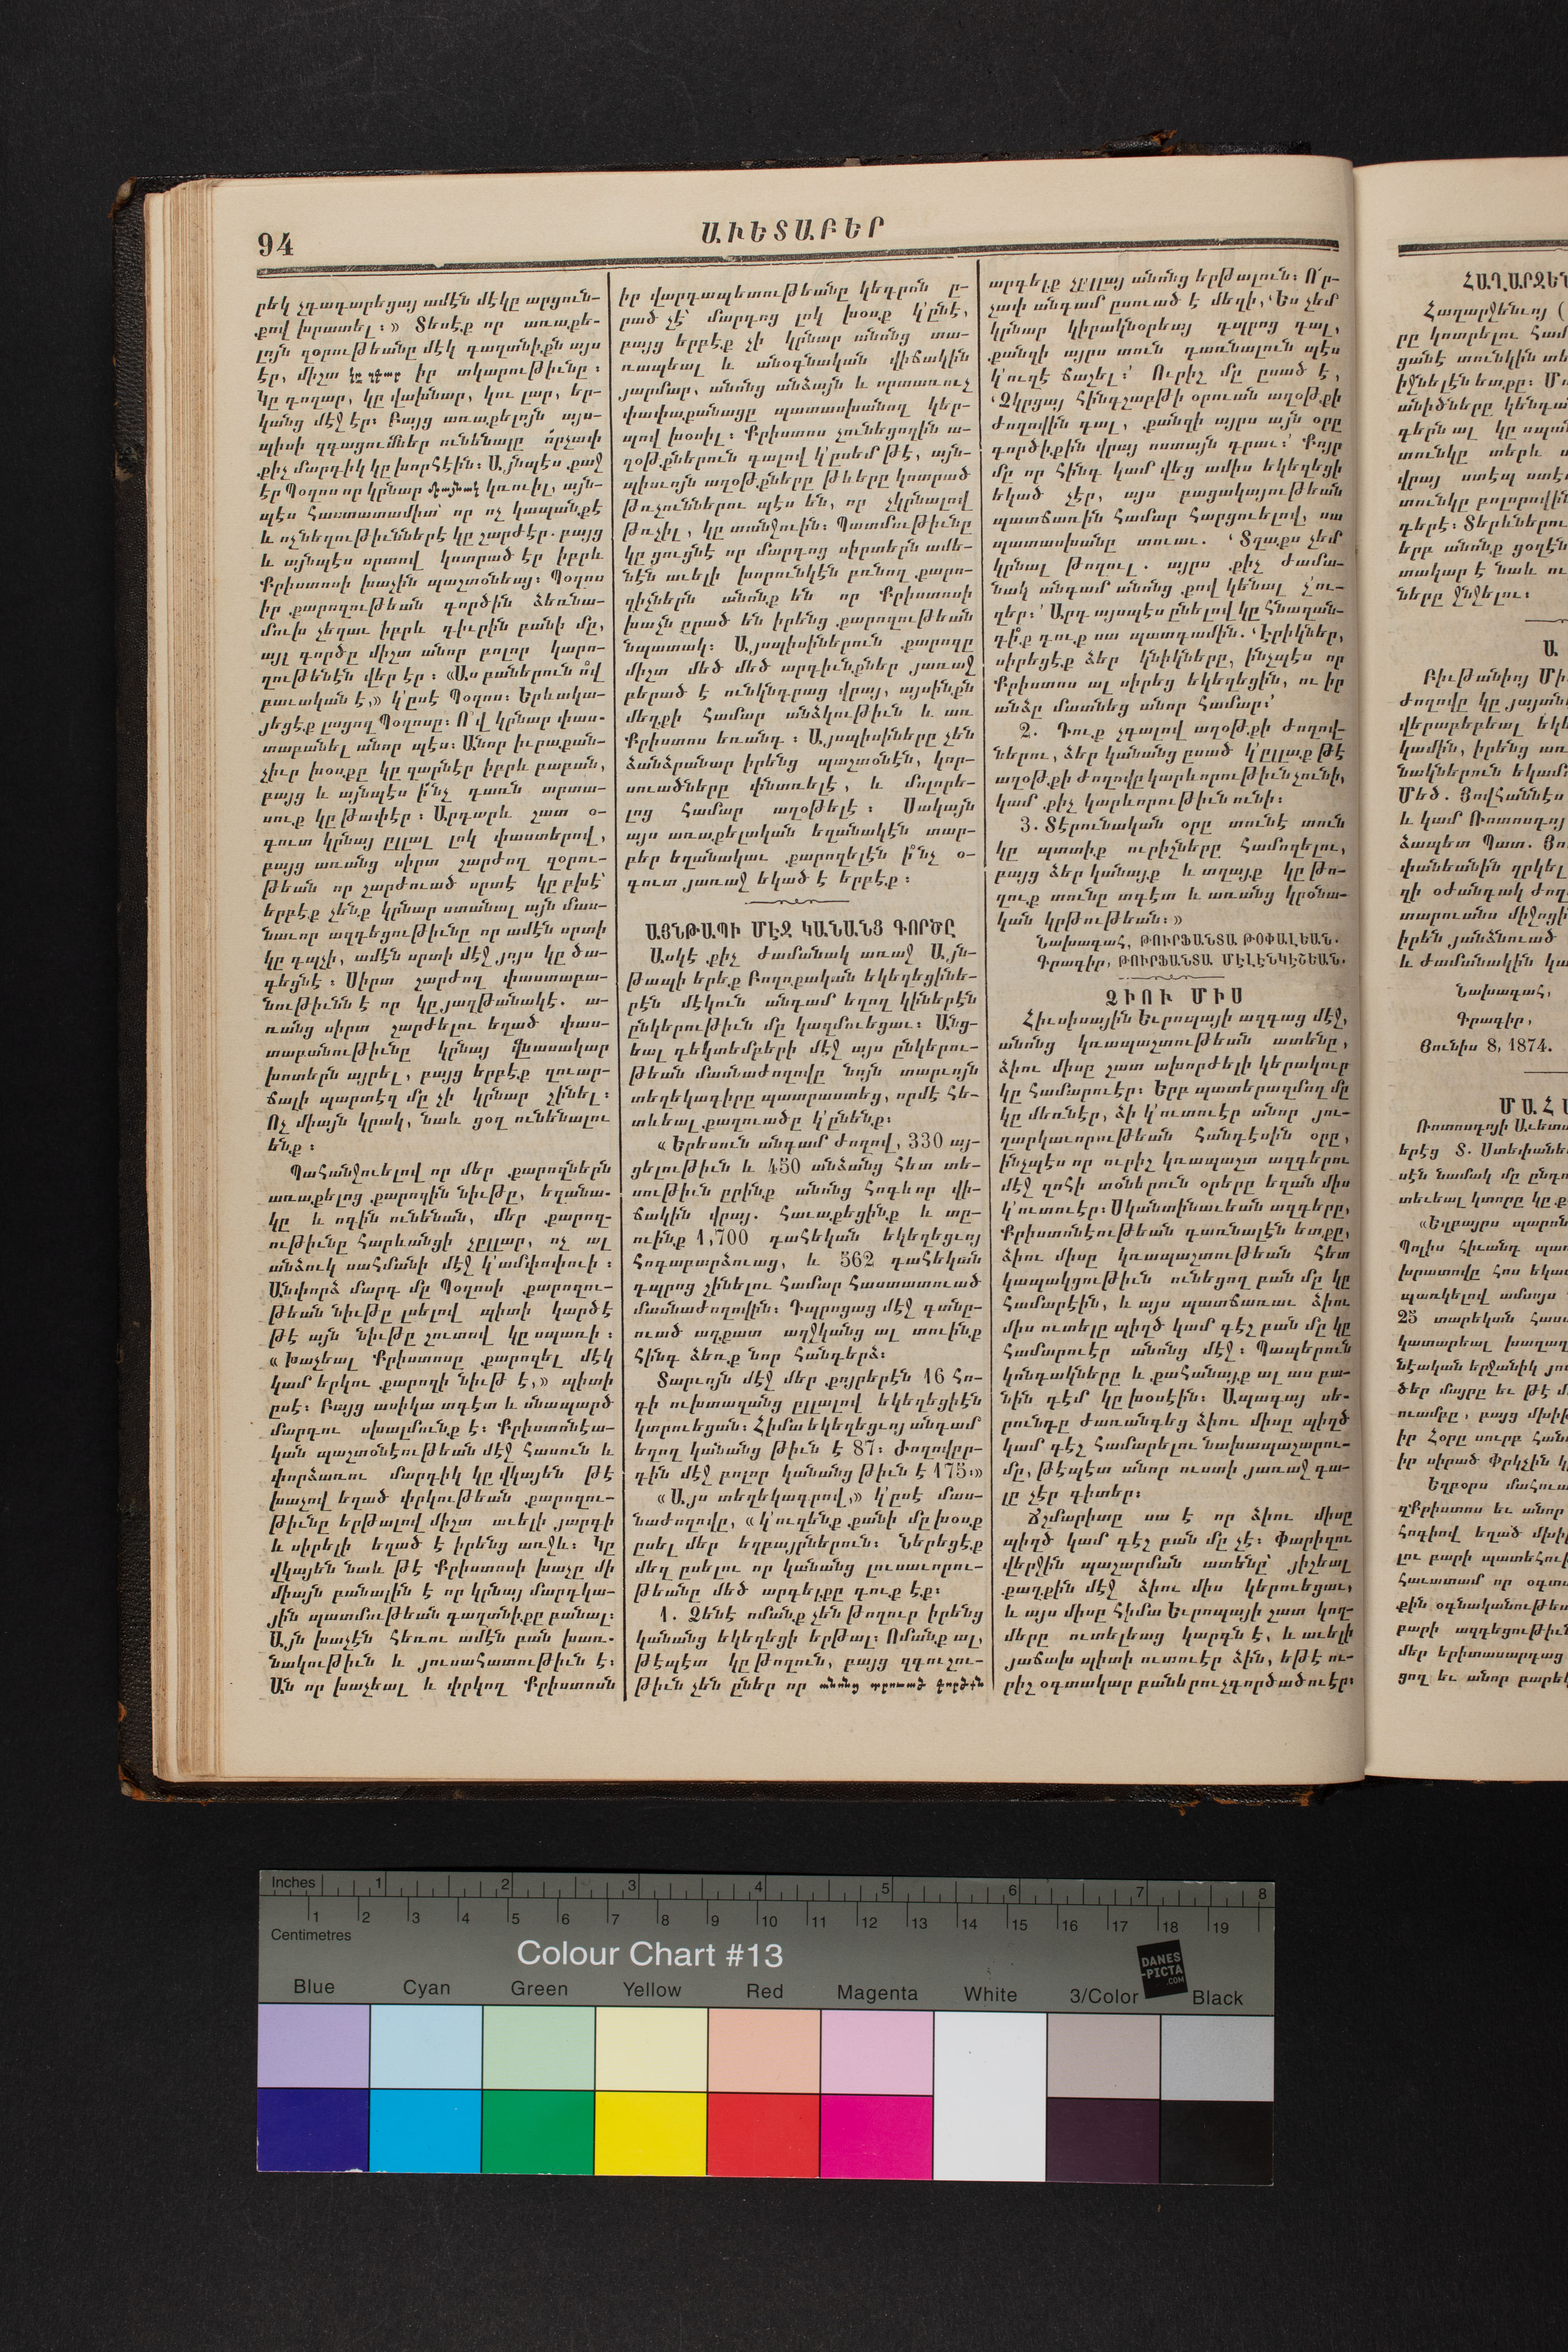 94
ԱՒԵՏԱԲԵՐ
րեկ չդադարեցայ ամէն մէկը արցուն-
քով խրատել։» Տեսէք որ առաքե-
լոյն զօրութեանը մէկ գաղտնիքն այս
էր, միշտ կը զգար իր տկարութիւնը։
Կը դողար, կը վախնար, կու լար, եր-
կանց մէջ էր։ Բայց առաքելոյն այս-
պիսի զգացումներ ունենալը ո՛րչափ
քիչ մարդիկ կը խորհէին։ Այնպէս քաջ
էր Պօղոս որ կրնար միայնակ կռուիլ, այն-
պէս հաստատամիտ՝ որ ոչ կապանքէ
և ոչ նեղութիւններէ կը շարժէր. բայց
և այնպէս սրտով կոտրած էր իբրև
Քրիստոսի խաչին պաշտօնեայ։ Պօղոս
իր քարոզութեան գործին ձեռնա-
մուխ չեղաւ իբրև դիւրին բանի մը,
այլ գործը միշտ անոր բոլոր կարո-
ղութենէն վեր էր։ «Աս բաներուն ո՞վ
բաւական է,» կ՚ըսէ Պօղոս։ Երևակա-
յեցէք լացող Պօղոսը։ Ո՞վ կրնար փաս-
տաբանել անոր պէս։ Անոր իւրաքան-
չիւր խօսքը կը զարնէր իբրև բաբան,
բայց և այնպէս ի՞նչ դառն արտա-
սուք կը թափէր։ Արդարև շատ օ-
գուտ կրնայ ըլլալ լոկ փաստերով,
բայց առանց սիրտ շարժող զօրու-
թեան որ շարժուած սրտէ կը բխէ՝
երբէք չենք կրնար ստանալ այն մաս-
նաւոր ազդեցութիւնը որ ամէն սրտի
կը դպչի, ամէն սրտի մէջ յոյս կը ծա-
գեցնէ։ Սիրտ շարժող փաստաբա-
նութիւնն է որ կը յաղթանակէ. ա-
ռանց սիրտ շարժելու եղած փաս-
տաբանութիւնը կրնայ վնասակար
խոտերն այրել, բայց երբէք զուար-
ճալի պարտէզ մը չի կրնար շինել։
Ոչ միայն կրակ, նաև ցօղ ունենալու
ենք։
Պահանջուելով որ մեր քարոզներն
առաքելոց քարոզին նիւթը, եղանա-
կը և ոգին ունենան, մեր քարոզ-
ութիւնը հարևանցի չըլլար, ոչ ալ
անձուկ սահմանի մէջ կ՚ամփոփուի։
Անփորձ մարդ մը Պօղոսի քարոզու-
թեան նիւթը լսելով պիտի կարծէ
թէ այն նիւթը շուտով կը սպառի։
« Խաչեալ Քրիստոսը քարոզել մէկ
կամ երկու քարոզի նիւթ է,» պիտի
ըսէ։ Բայց ասիկա տգէտ և սնապարծ
մարդու սխալմունք է։ Քրիստոնէա-
կան պաշտօնէութեան մէջ հասուն և
փորձառու մարդիկ կը վկայեն թէ
խաչով եղած փրկութեան քարոզու-
թիւնը երթալով միշտ աւելի յարգի
և սիրելի եղած է իրենց առջև։ Կը
վկայեն նաև թէ Քրիստոսի խաչը մի
միայն բանալին է որ կրնայ մարդկա-
յին պատմութեան գաղտնիքը բանալ։
Այն խաչէն հեռու ամէն բան խառ-
նակութիւն և յուսահատութիւն է։
Ան որ խաչեալ և փրկող Քրիստոսն
իր վարդապետութեանը կեդրոն ը-
րած չէ՝ մարդոց լոկ խօսք կ՚ընէ,
բայց երբէք չի կրնար անոնց տա-
ռապեալ և անօգնական վիճակին
յարմար, անոնց անձայն և որոտառուչ
փափաքանացը պատասխանող կեր-
պով խօսիլ։ Քրիստոս չունեցողին ա-
ղօթքներուն գալով կ՚ըսեմ թէ, այն-
պիսւոյն աղօթքները թևերը կոտրած
թռչուններու պէս են, որ չկրնալով
թռչիլ, կը տանջուին։ Պատմութիւնը
կը ցուցնէ որ մարդոց սիրտերն ամե-
նէն աւելի խորունկէն բռնող քարո-
զիչներն անոնք են որ Քրիստոսի
խաչն ըրած են իրենց քարոզութեան
նպատակ։ Այսպիսիներուն քարոզը
միշտ մեծ մեծ արդիւնքներ յառաջ
բերած է ունկնդրաց վրայ, այսինքն
մեղքի համար անձկութիւն և առ
Քրիստոս եռանդ։ Այսպիսիները չեն
ձանձրանար իրենց պաշտօնէն, կոր-
սուածները փնտռելէ, և մոլորե-
լոց համար աղօթելէ։ Սակայն
այս առաքելական եղանակէն տար-
բեր եղանակաւ քարոզելէն ի՞նչ օ-
գուտ յառաջ եկած է երբէք։
ԱՅՆԹԱՊԻ ՄԷՋ ԿԱՆԱՆՑ ԳՈՐԾԸ
Ասկէ քիչ ժամանակ առաջ Այն-
թապի երեք Բողոքական եկեղեցինե-
րէն մէկուն անդամ եղող կիներէն
ընկերութիւն մը կազմուեցաւ։ Անց-
եալ դեկտեմբերի մէջ այս ընկերու-
թեան մասնաժողովը նոյն տարւոյն
տեղեկագիրը պատրաստեց, որմէ հե-
տևեալ քաղուածը կ՚ընենք։
« Երեսուն անդամ ժողով, 330 այ-
ցելութիւն և 450 անձանց հետ տե-
սութիւն ըրինք անոնց հոգևոր վի-
ճակին վրայ. հաւաքեցինք և տը-
ուինք 1,700 դահեկան եկեղեցւոյ
հոգաբարձուաց, և 562 դահեկան
դպրոց շինելու համար հաստատուած
մասնաժողովին։ Դպրոցաց մէջ գտնը-
ուած աղքատ աղջկանց ալ տուինք
հինգ ձեռք նոր հանդերձ։
Տարւոյն մէջ մեր քոյրերէն 16 հո-
գի ուխտազանց ըլլալով եկեղեցիէն
կտրուեցան։ Հիմա եկեղեցւոյ անդամ
եղող կանանց թիւն է 87։ Ժողովըր-
դին մէջ բոլոր կանանց թիւն է 175։»
« Այս տեղեկագրով,» կ՚ըսէ մաս-
նաժողովը, « կ՚ուզենք քանի մը խօսք
ըսել մեր եղբայրներուն։ Ներեցէք
մեզ ըսելու որ կանանց լուսաւորու-
թեանը մեծ արգելքը դուք էք։
1. Ձենէ ոմանք չեն թողուր իրենց
կանանց եկեղեցի երթալ։ Ոմանք ալ,
թէպէտ կը թողուն, բայց զգուշու-
թիւն չեն ըներ որ անոնց տըուած գործին
արգելք չըլլայ անոնց երթալուն։ Ո՛ր-
չափ անգամ ըսուած է մեզի, ‘Ես չեմ
կրնար կիրակնօրեայ դպրոց գալ,
քանզի այրս տուն դառնալուն պէս
կ՚ուզէ ճաշել։’ Ուրիշ մը ըսած է,
‘Չկրցայ հինգշաբթի օրուան աղօթքի
ժողովին գալ, քանզի այրս այն օրը
գործիքին վրայ ոստայն դրաւ։’ Քոյր
մը որ հինգ կամ վեց ամիս եկեղեցի
եկած չէր, այս բացակայութեան
պատճառին համար հարցուելով, սա
պատասխանը տուաւ. ‘Տղաքս չեմ
կրնալ թողուլ. այրս քիչ ժամա-
նակ անգամ անոնց քով կենալ չ՚ու-
զեր։’ Արդ այսպէս ընելով կը հնազան-
դի՞ք դուք սա պատգամին. ‘Էրիկներ,
սիրեցէք ձեր կնիկները, ինչպէս որ
Քրիստոս ալ սիրեց եկեղեցին, ու իր
անձը մատնեց անոր համար։’
2. Դուք չգալով աղօթքի ժողով-
ներու, ձեր կանանց ըսած կ՚ըլլաք թէ
աղօթքի ժողովը կարևորութիւն չունի,
կամ քիչ կարևորութիւն ունի։
3. Տէրունական օրը տունէ տուն
կը պտտիք ուրիշները համոզելու,
բայց ձեր կանայք և տղայք կը թո-
ղուք տունը տգէտ և առանց կրօնա-
կան կրթութեան։»
Նախագահ, ԹՈՒՐՖԱՆՏԱ ԹՕՓԱԼԵԱՆ.
Գրագիր, ԹՈՒՐՖԱՆՏԱ ՄԷԼԷՆԿԷՇԵԱՆ.
ՁԻՈՒ ՄԻՍ
Հիւսիսային Եւրոպայի ազգաց մէջ,
անոնց կռապաշտութեան ատենը,
ձիու միսը շատ ախորժելի կերակուր
կը համարուէր։ Երբ պատերազմող մը
կը մեռնէր, ձի կ՚ուտուէր անոր յու-
ղարկաւորութեան հանդէսին օրը,
ինչպէս որ ուրիշ կռապաշտ ազգերու
մէջ զոհի տօներուն օրերը եզան միս
կ՚ուտուէր։ Սկանտինաւեան ազգերը,
Քրիստոնէութեան դառնալէն ետքը,
ձիու միսը կռապաշտութեան հետ
կապակցութիւն ունեցող բան մը կը
համարէին, և այս պատճառաւ ձիու
միս ուտելը պիղծ կամ գէշ բան մը կը
համարուէր անոնց մէջ։ Պապերուն
կոնդակները և քահանայք ալ աս բա-
նին դէմ կը խօսէին։ Ապագայ սե-
րունդը ժառանգեց ձիու միսը պիղծ
կամ գէշ համարելու նախապաշարու-
մը, թէպէտ անոր ուստի յառաջ գա-
լը չէր գիտեր։
Ճշմարիտը սա է որ ձիու միսը
պիղծ կամ գէշ բան մը չէ։ Փարիզու
վերջին պաշարման ատենը՝ յիշեալ
քաղքին մէջ ձիու միս կերուեցաւ,
և այս միսը հիմա Եւրոպայի շատ կող-
մերը ուտելեաց կարգն է, և աւելի
յաճախ պիտի ուտուէր ձին, եթէ ու-
րիշ օգտակար բաներու չգործածուէր։
Հաղարջենւոյ (
րը կոտրելու համ
ցանէ տունկին տե
իջնելէն ետքը։ Մ
անիծները կենդա
գերն ալ կը սպան
տունկը տերև
վրայ ստէպ ստէ
տունկը բոլորովին
գերէ։ Տերևներու
երբ անոնք ցօղէն
տակար է նաև ու
ները ջնջելու։
Ա
Բիւթանիոյ Մի
ժողովը կը յայտնե
վերաբերեալ եկե
կամին, իրենց առ
նակներուն եկամ
Մեծ. Յովհաննէս
և կամ Ռոտոսդոյ
ձապետ Պատ. Յո
փանեանին ղրկել
ղի օժանդակ ժող
տարուանս միջոցի
իրեն յանձնուած
և ժամանակին կա
Նախագահ,
Գրագիր,
Յունիս 8, 1874.
ՄԱՀ
Ռոտոսդոյի Աւետա
երէց Տ. Ստեփանե
սէն նամակ մը ընդու
տեւեալ կտորը կը ք
«Եղբայրս պարոն
Պոլիս հիւանդ պառ
խրատովը հոս եկաւ
պառկելով ամսոյս
25 տարեկան հաս
կատարեալ խաղաղ
նէական երջանիկ յու
ծեր մայրը եւ թէ մ
ուամբը, բայց մխիթ
իր Հօրը սուրբ համ
իր սիրած Փրկչին կ
Եղբօրս մահուա
զՔրիստոս եւ անոր
հոգիով եղած մխիթ
լու բարի պատեհութ
հաւատամ որ օգտ
քին օգնականութեա
բարի ազդեցութիւն
մեր երիտասարդաց
ցող եւ անոր բարե
Inches 1 2 3 4 5 6 7 8
1 2 3 4 5 6 7 8 9 10 11 12 13 14 15 16 17 18 19
Centimetres
Colour Chart #13
DANES
-PICTA
.COM
Blue Cyan Green Yellow Red Magenta White 3/Color Black